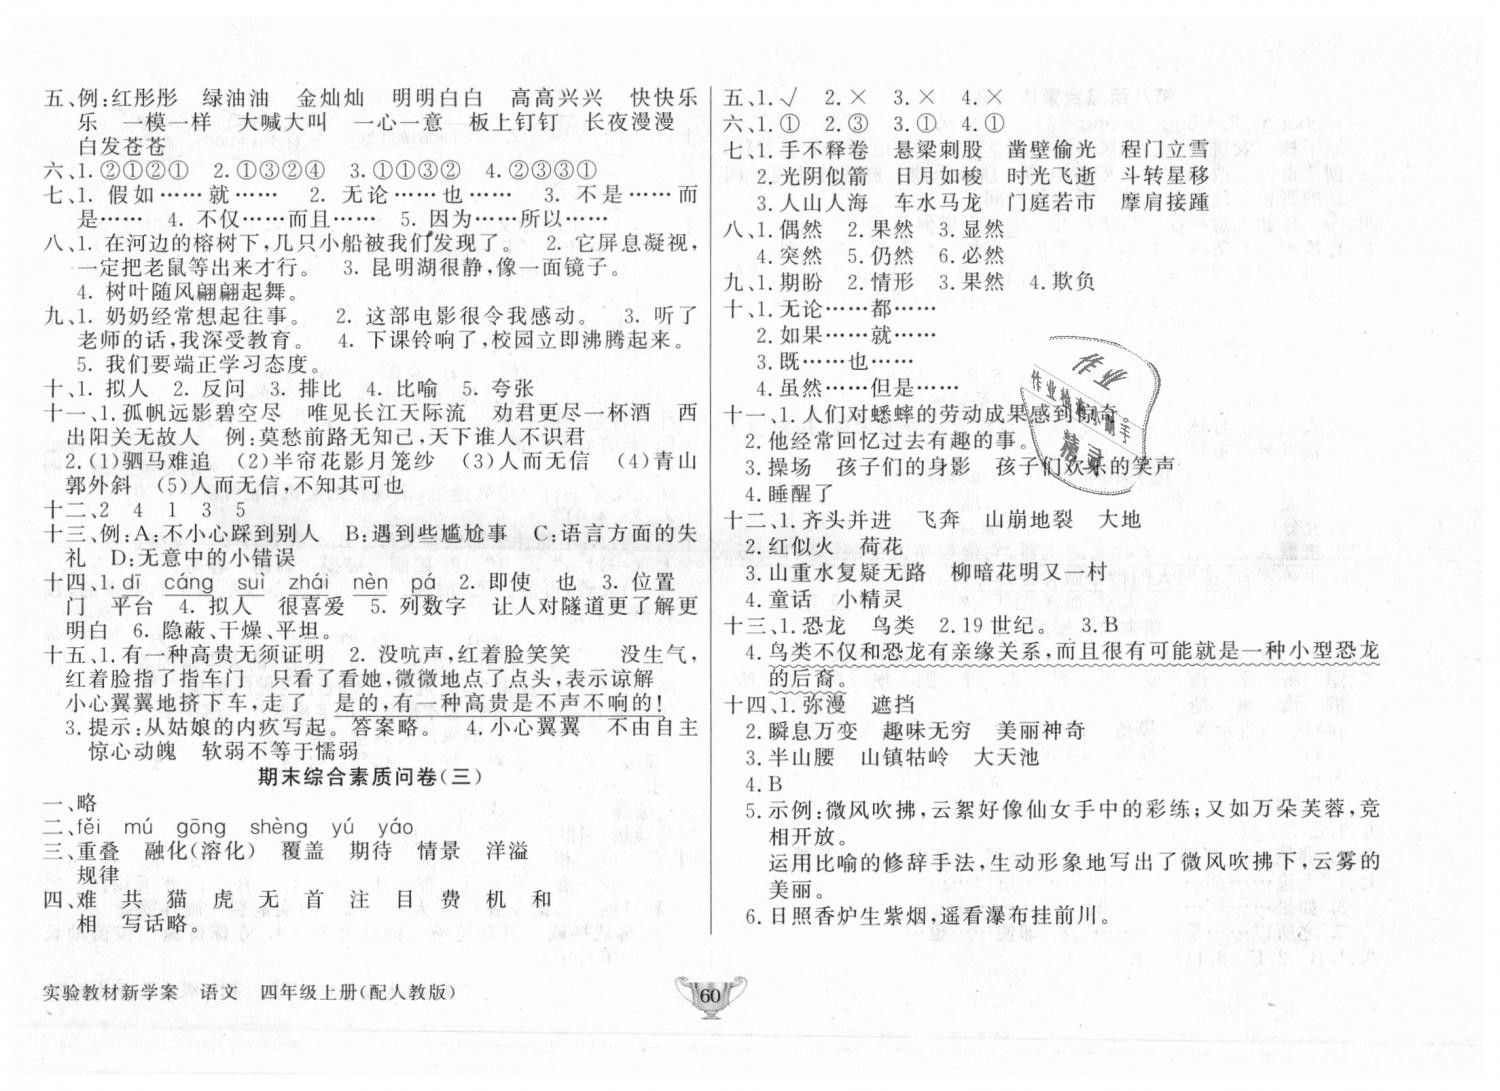 五、例:红彤彤　绿油油　金灿灿　明明白白　高高兴兴　快快乐
乐　一模一样　大喊大叫　一心一意　板上钉钉　长夜漫漫
白发苍苍
六、1.②①②①　2.①③②④　3.①①③②　4.③②③①
七、1. 假如……就……　2. 无论……也……　3. 不是……而
是……　4. 不仅……而且……　5. 因为……所以……
八、1. 在河边的榕树下,几只小船被我们发现了。　2. 它屏息凝视,
一定把老鼠等出来才行。　3. 昆明湖很静,像一面镜子。
4. 树叶随风翩翩起舞。
九、1. 奶奶经常想起往事。　2. 这部电影很令我感动。　3. 听了
老师的话,我深受教育。　4. 下课铃响了,校园立即沸腾起来。
5. 我们要端正学习态度。
十、1. 拟人　2. 反问　3. 排比　4. 比喻　5. 夸张
十一、1.孤帆远影碧空尽　唯见长江天际流　劝君更尽一杯酒　西
出阳关无故人　例:莫愁前路无知己,天下谁人不识君
2.(1)驷马难追　(2)半帘花影月笼纱　(3)人而无信　(4)青山
郭外斜　(5)人而无信,不知其可也
十二、2　4　1　3　5
十三、例:A:不小心踩到别人　B:遇到些尴尬事　C:语言方面的失
礼　D:无意中的小错误
十四、1.dī　cáng　suì　zhái　nèn　pá　2.即使　也　3.位置
门　平台　4. 拟人　很喜爱　5. 列数字　让人对隧道更了解更
明白　6. 隐蔽、干燥、平坦。
十五、1.有一种高贵无须证明　2. 没吭声,红着脸笑笑　没生气,
红着脸指了指车门　只看了看她,微微地点了点头,表示谅解
小心翼翼地挤下车,走了　是的,有一种高贵是不声不响的!
3.提示:从姑娘的内疚写起。答案略。　4.小心翼翼　不由自主
惊心动魄　软弱不等于懦弱
期末综合素质问卷(三)
一、略
二、fěi　mú　gōng　shèng　yú　yáo
三、重叠　融化(溶化)　覆盖　期待　情景　洋溢
规律
四、难　共　猫　虎　无　首　注　目　费　机　和
相　写话略。
五、1.√　2.×　3.×　4.×
六、1.①　2.③　3.①　4.①
七、1.手不释卷　悬梁刺股　凿壁偷光　程门立雪
2.光阴似箭　日月如梭　时光飞逝　斗转星移
3.人山人海　车水马龙　门庭若市　摩肩接踵
八、1.偶然　2.果然　3.显然
4.突然　5.仍然　6.必然
九、1.期盼　2.情形　3.果然　4.欺负
十、1.无论……都……
2.如果……就……
3.既……也……
4.虽然……但是……
十一、1.人们对蟋蟀的劳动成果感到惊奇。
2.他经常回忆过去有趣的事。
3.操场　孩子们的身影　孩子们欢乐的笑声
4.睡醒了
十二、1.齐头并进　飞奔　山崩地裂　大地
2.红似火　荷花
3.山重水复疑无路　柳暗花明又一村
4.童话　小精灵
十三、1.恐龙　鸟类　2.19世纪。　3.B
4.鸟类不仅和恐龙有亲缘关系,而且很有可能就是一种小型恐龙
的后裔。
十四、1.弥漫　遮挡
2.瞬息万变　趣味无穷　美丽神奇
3.半山腰　山镇牯岭　大天池
4.B
5.示例:微风吹拂,云絮好像仙女手中的彩练;又如万朵芙蓉,竞
相开放。
运用比喻的修辞手法,生动形象地写出了微风吹拂下,云雾的
美丽。
6.日照香炉生紫烟,遥看瀑布挂前川。
作业
作业检查小助手
精灵
实验教材新学案　语文　四年级上册(配人教版)
60